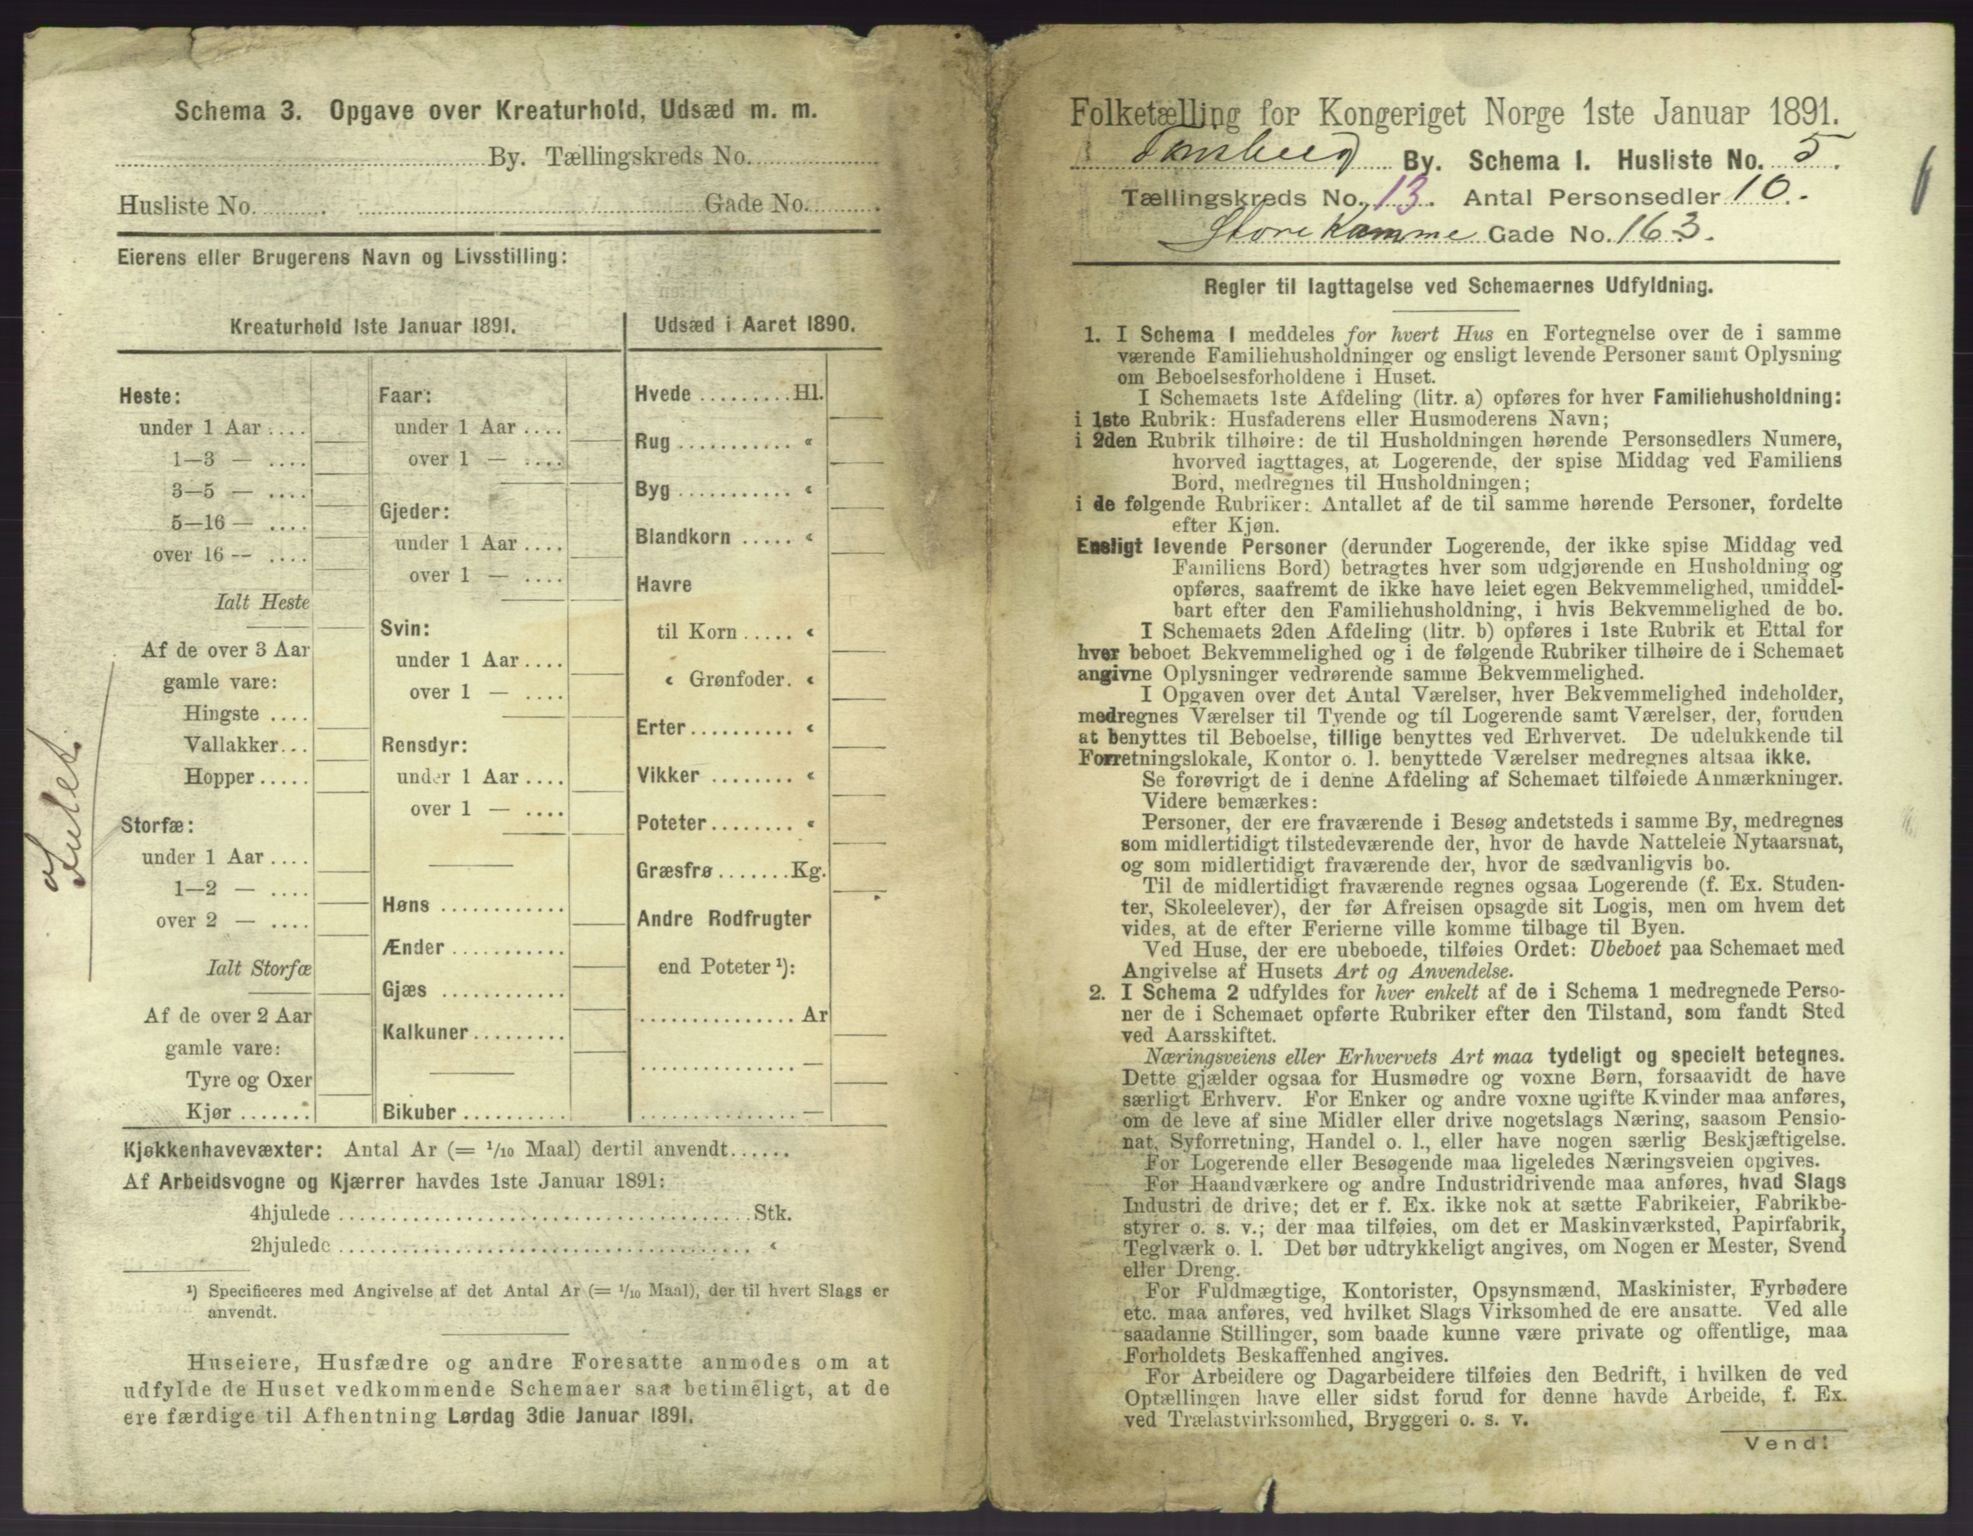 Schema 3. Opgave over Kreaturhold, Udsæd m. m.
By. Tællingskreds No.
Husliste No. Gade No.
Eierens eller Brugerens Navn og Livsstilling:
Kreaturhold 1ste Januar 1891.
Heste:
under 1 Aar ....
1—3 — ....
3—5 — ....
5—16 — ....
over 16 -- ....
Ialt Heste
Af de over 3 Aar
gamle vare:
Hingste ....
Vallakker...
Hopper.....
Storfæ:
under 1 Aar ....
1—2 — ....
over 2 — ....
Ialt Storfæ
Af de over 2 Aar
gamle vare:
Tyre og Oxer
Kjør .......
Faar:
under 1 Aar ....
over 1 — ....
Gjeder:
under 1 Aar ....
over 1 — ....
Svin:
under 1 Aar ....
over 1 — ....
Rensdyr:
under 1 Aar ....
over 1 — ....
Høns ............
Ænder ...........
Gjæs ............
Kalkuner.........
Bikuber ..........
Udsæd i Aaret 1890.
Hvede .........Hl.
Rug ........... «
Byg ........... «
Blandkorn ..... «
Havre
til Korn ..... «
« Grønfoder. «
Erter.......... «
Vikker ........ «
Poteter........ «
Græsfrø .......Kg.
Andre Rodfrugter
end Poteter ¹):
............... Ar
............... —
............... —
Kjøkkenhavevæxter: Antal Ar (= 1/10 Maal) dertil anvendt......
Af Arbeidsvogne og Kjærrer havdes 1ste Januar 1891:
4hjulede ........................................Stk.
2hjulede ........................................ «
¹) Specificeres med Angivelse af det Antal Ar (= 1/10 Maal), der til hvert Slags er
anvendt.
Huseiere, Husfædre og andre Foresatte anmodes om at
udfylde de Huset vedkommende Schemaer saa betimeligt, at de
ere færdige til Afhentning Lørdag 3die Januar 1891.
Intet.
Folketælling for Kongeriget Norge 1ste Januar 1891.
Tønsberg By. Schema I. Husliste No. 5.
Tællingskreds No. 13. Antal Personsedler 10.
Store Kamme Gade No. 163.
Regler til Iagttagelse ved Schemaernes Udfyldning.
1. I Schema 1 meddeles for hvert Hus en Fortegnelse over de i samme
værende Familiehusholdninger og ensligt levende Personer samt Oplysning
om Beboelsesforholdene i Huset.
I Schemaets 1ste Afdeling (litr. a) opføres for hver Familiehusholdning:
i 1ste Rubrik: Husfaderens eller Husmoderens Navn;
i 2den Rubrik tilhøire: de til Husholdningen hørende Personsedlers Numere,
hvorved iagttages, at Logerende, der spise Middag ved Familiens
Bord, medregnes til Husholdningen;
i de følgende Rubriker: Antallet af de til samme hørende Personer, fordelte
efter Kjøn.
Ensligt levende Personer (derunder Logerende, der ikke spise Middag ved
Familiens Bord) betragtes hver som udgjørende en Husholdning og
opføres, saafremt de ikke have leiet egen Bekvemmelighed, umiddel-
bart efter den Familiehusholdning, i hvis Bekvemmelighed de bo.
I Schemaets 2den Afdeling (litr. b) opføres i 1ste Rubrik et Ettal for
hver beboet Bekvemmelighed og i de følgende Rubriker tilhøire de i Schemaet
angivne Oplysninger vedrørende samme Bekvemmelighed.
I Opgaven over det Antal Værelser, hver Bekvemmelighed indeholder,
medregnes Værelser til Tyende og til Logerende samt Værelser, der, foruden
at benyttes til Beboelse, tillige benyttes ved Erhvervet. De udelukkende til
Forretningslokale, Kontor o. l. benyttede Værelser medregnes altsaa ikke.
Se forøvrigt de i denne Afdeling af Schemaet tilføiede Anmærkninger.
Videre bemærkes:
Personer, der ere fraværende i Besøg andetsteds i samme By, medregnes
som midlertidigt tilstedeværende der, hvor de havde Natteleie Nytaarsnat,
og som midlertidigt fraværende der, hvor de sædvanligvis bo.
Til de midlertidigt fraværende regnes ogsaa Logerende (f. Ex. Studen-
ter, Skoleelever), der før Afreisen opsagde sit Logis, men om hvem det
vides, at de efter Ferierne ville komme tilbage til Byen.
Ved Huse, der ere ubeboede, tilføies Ordet: Ubeboet paa Schemaet med
Angivelse af Husets Art og Anvendelse.
2. I Schema 2 udfyldes for hver enkelt af de i Schema 1 medregnede Perso-
ner de i Schemaet opførte Rubriker efter den Tilstand, som fandt Sted
ved Aarsskiftet.
Næringsveiens eller Erhvervets Art maa tydeligt og specielt betegnes.
Dette gjælder ogsaa for Husmødre og voxne Børn, forsaavidt de have
særligt Erhverv. For Enker og andre voxne ugifte Kvinder maa anføres,
om de leve af sine Midler eller drive nogetslags Næring, saasom Pensio-
nat, Syforretning, Handel o. l., eller have nogen særlig Beskjæftigelse.
For Logerende eller Besøgende maa ligeledes Næringsveien opgives.
For Haandværkere og andre Industridrivende maa anføres, hvad Slags
Industri de drive; det er f. Ex. ikke nok at sætte Fabrikeier, Fabrikbe-
styrer o. s. v.; der maa tilføies, om det er Maskinværksted, Papirfabrik,
Teglværk o. l. Det bør udtrykkeligt angives, om Nogen er Mester, Svend
eller Dreng.
For Fuldmægtige, Kontorister, Opsynsmænd, Maskinister, Fyrbødere
etc. maa anføres, ved hvilket Slags Virksomhed de ere ansatte. Ved alle
saadanne Stillinger, som baade kunne være private og offentlige, maa
Forholdets Beskaffenhed angives.
For Arbeidere og Dagarbeidere tilføies den Bedrift, i hvilken de ved
Optællingen have eller sidst forud for denne havde Arbeide, f. Ex.
ved Trælastvirksomhed, Bryggeri o. s. v.
Vend!